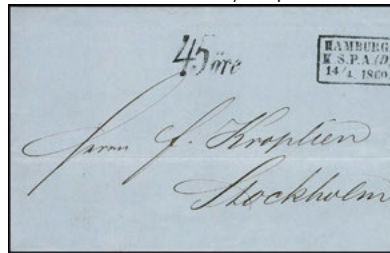 45 öre
HAMBURG
K.S.P.A.(D)
14/4. 1860
Herrn f. Kroplien
Stockholm